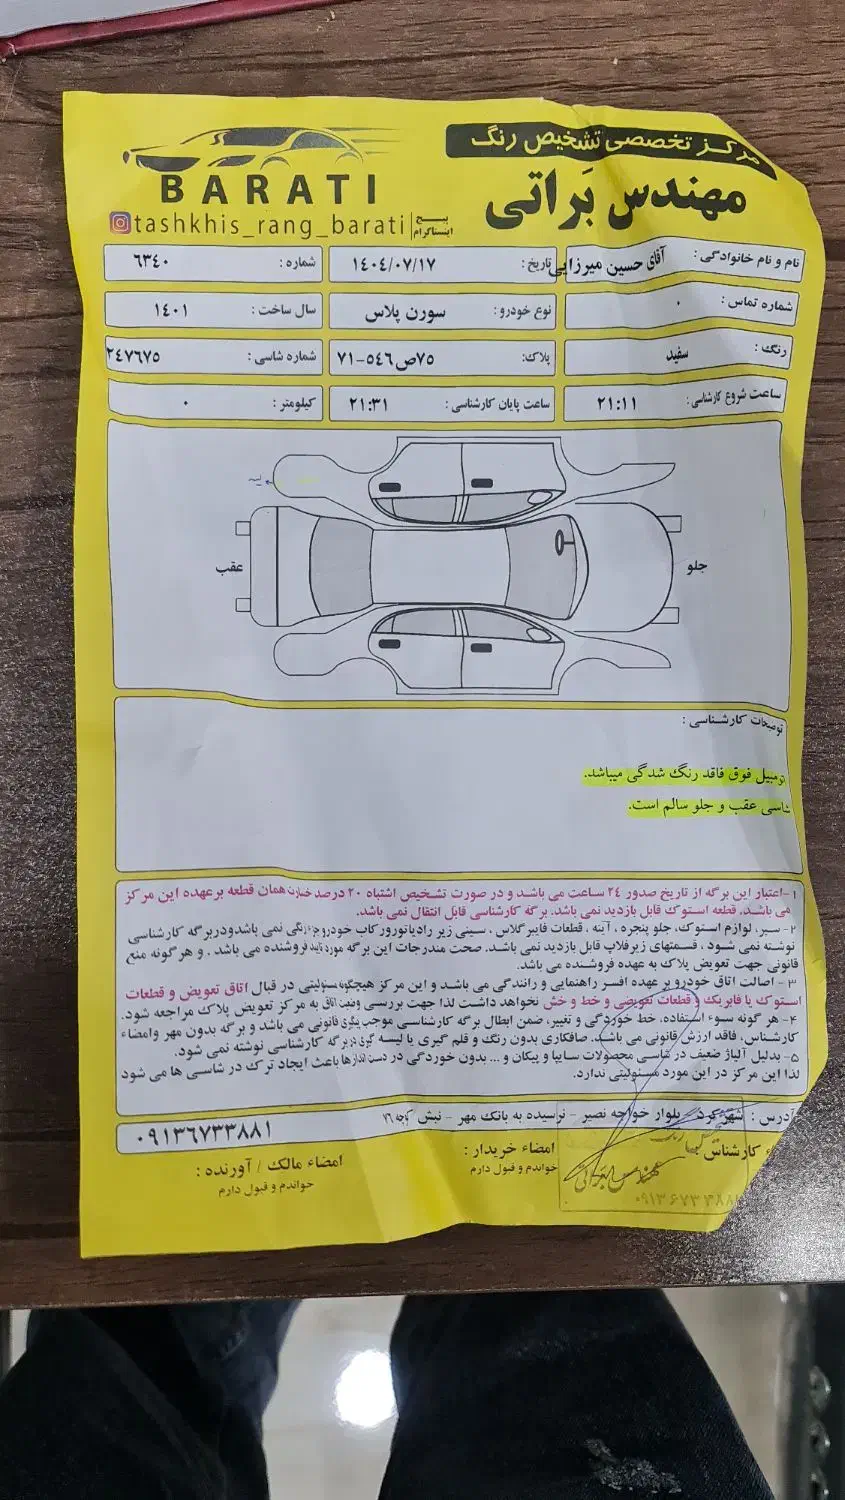 مرکز تخصصی تشخیص رنگ
مهندس بَراتی
BARATI
tashkhis_rang_barati پیج اینستاگرام
نام و نام خانوادگی : آقای حسین میرزایی تاریخ : ۱۴۰۴/۰۷/۱۷ شماره : ۶۳۴۰
شماره تماس : ۰ نوع خودرو : سورن پلاس سال ساخت : ۱۴۰۱
رنگ : سفید پلاک: ۷۵ص۵۴۶-۷۱ شماره شاسی : ۲۴۷۶۷۵
ساعت شروع کارشناسی : ۲۱:۱۱ ساعت پایان کارشناسی : ۲۱:۳۱ کیلومتر : ۰
جلو
عقب
توضیحات کارشناسی :
فوق فاقد رنگ شدگی میباشد.
عقب و جلو سالم است.
۱-اعتبار این برگه از تاریخ صدور ۲۴ ساعت می باشد و در صورت تشخیص اشتباه ۲۰ درصد خسارت همان قطعه برعهده این مرکز
می باشد. قطعه استوک قابل بازدید نمی باشد. برگه کارشناسی قابل انتقال نمی باشد.
۲- سپر، لوازم استوک، جلو پنجره ، آینه ، قطعات فایبرگلاس ، سینی زیر رادیاتور ور کاب خودرو جزء رنگی نمی باشد ودر برگه کارشناسی
نوشته نمی شود ، قسمتهای زیرفلاپ قابل بازدید نمی باشد. صحت مندرجات این برگه مورد تایید فروشنده می باشد . و هر گونه منع
قانونی جهت تعویض پلاک به عهده فروشنده می باشد.
۳ - اصالت اتاق خودرو بر عهده افسر راهنمایی و رانندگی می باشد و این مرکز هیچگونه مسئولیتی در قبال اتاق تعویض و قطعات
استوک یا فابریک و قطعات تعویضی و خط و خش نخواهد داشت لذا جهت بررسی وضعیت اتاق به مرکز تعویض پلاک مراجعه شود.
۴- هر گونه سوء استفاده، خط خوردگی و تغییر، ضمن ابطال برگه کارشناسی موجب پیگری قانونی می باشد و برگه بدون مهر وامضاء
کارشناس، فاقد ارزش قانونی می باشد. صافکاری بدون رنگ و قلم گیری یا لیسه گیری در برگه کارشناسی نوشته نمی شود.
۵- بدلیل آلیاژ ضعیف در شاسی محصولات سایپا و پیکان و ... بدون خوردگی در دست اندازها باعث ایجاد ترک در شاسی ها می شود
لذا این مرکز در این مورد مسئولیتی ندارد.
آدرس : شهرکرد - بلوار خواجه نصیر - نرسیده به بانک مهر - نبش کوچه ۷۶
۰۹۱۳۶۷۳۳۸۸۱
کارشناس
امضاء خریدار :
خواندم و قبول دارم
امضاء مالک / آورنده :
خواندم و قبول دارم
مهندس براتی